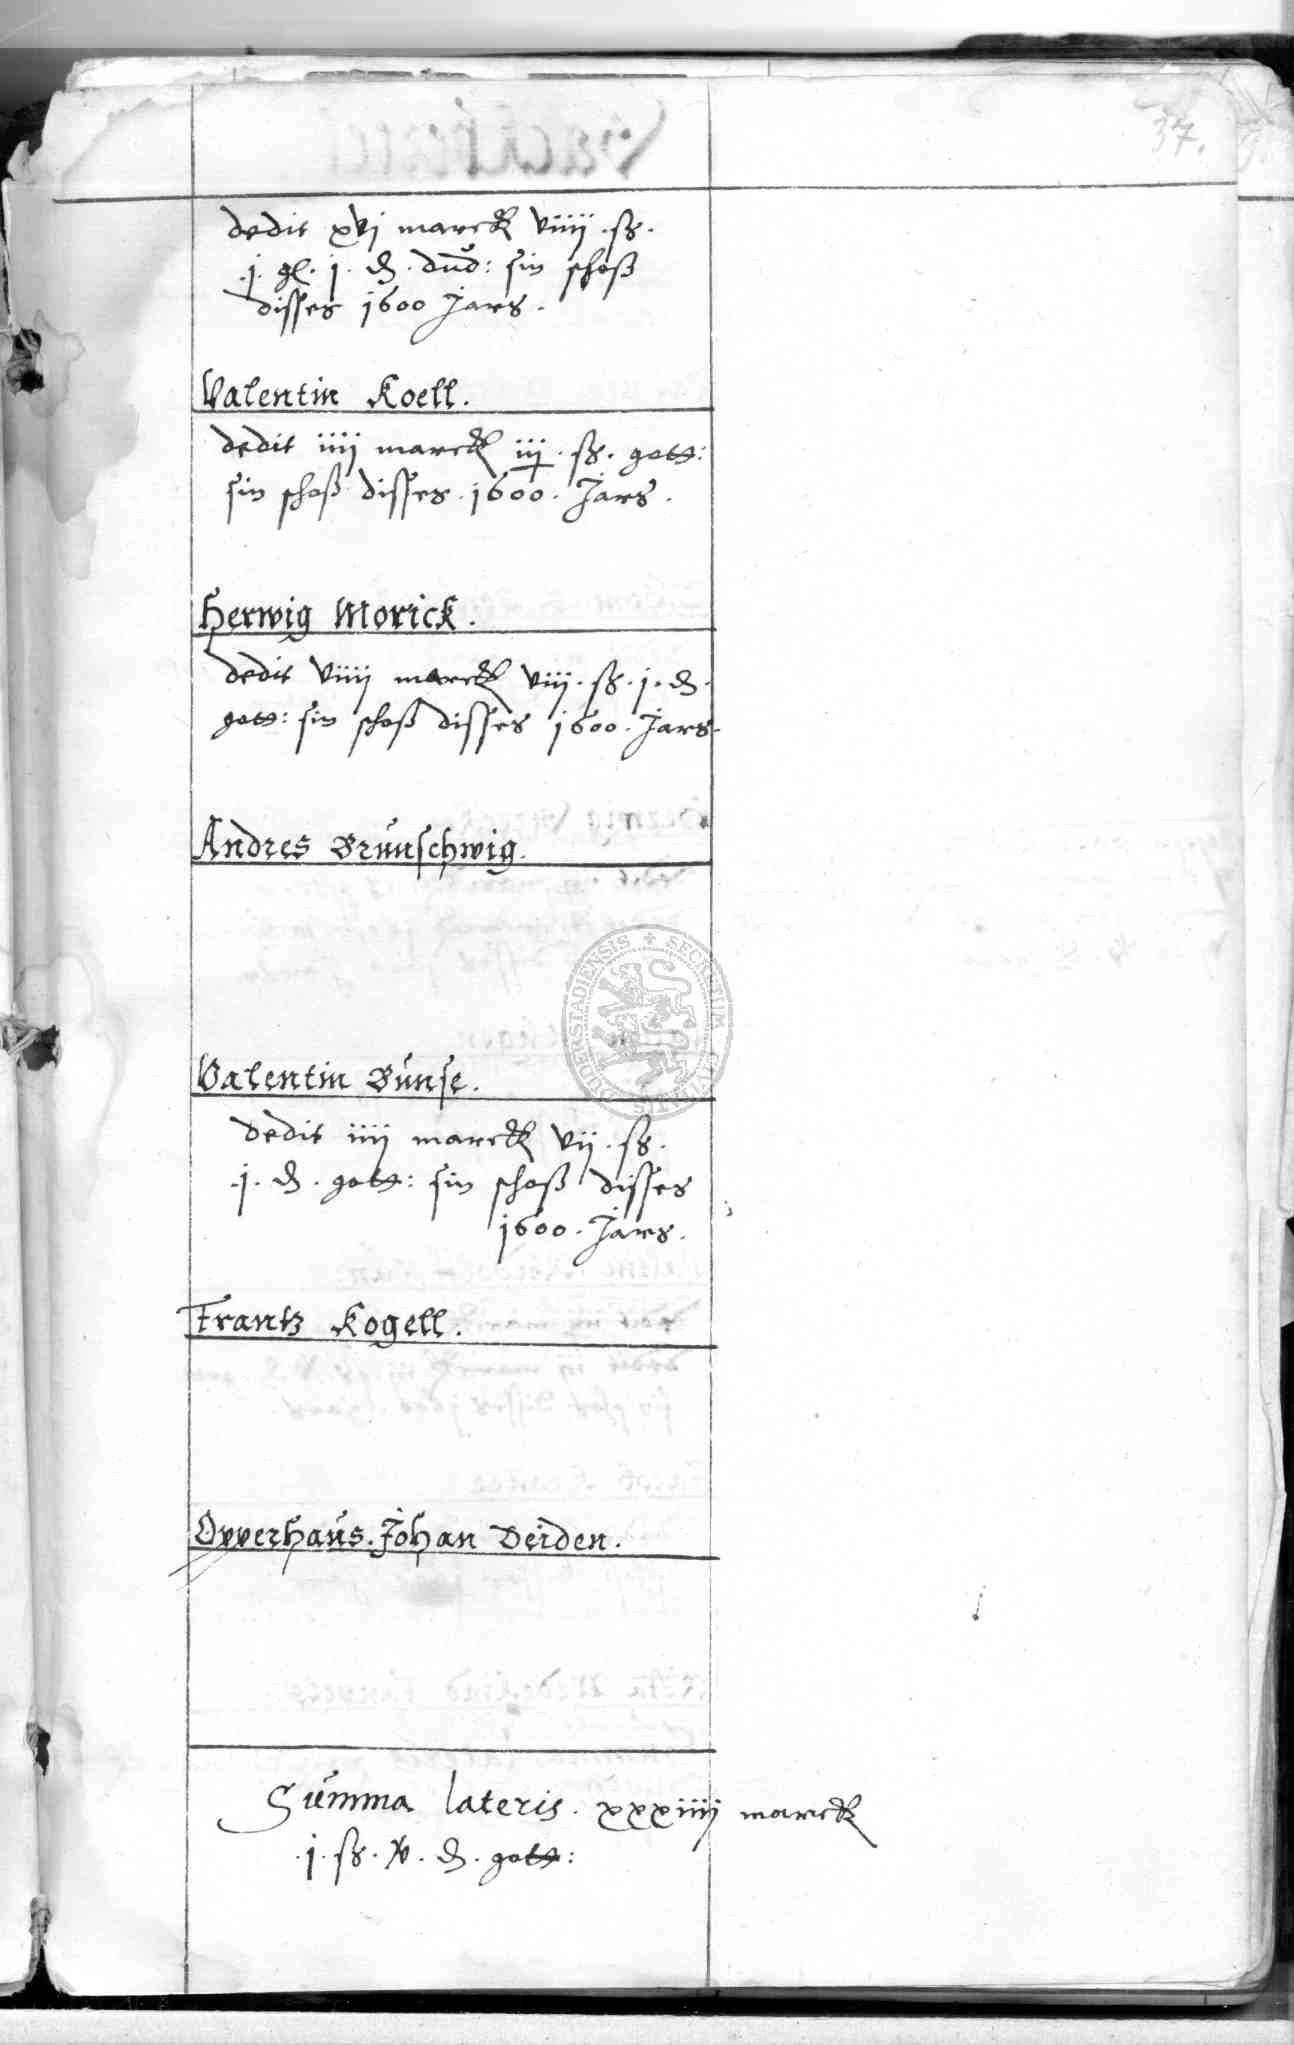 37.
dedit xvj marck viiij . ß .
. j . gl . j . d . dud : sin schoß
disses 1600 Jars .
Valentin Koell .
dedit iiij marck iij . ß . gott :
sin schoß disses . 1600 . Jars .
Herwig Morick .
dedit viiij marck viij . ß . j . d .
gott : sin schoß disses 1600 . Jars .
Andres Brunschwig .
Valentin Bunse .
dedit iiij marck vij . ß .
. j . d . gott : sin schoß disses
1600 . Jars .
Frantz Kogell .
Opperhaus . Johan Deiden .
Summa lateris . xxxiiij marck
. j . ß . v . d . gott :
SECRETUM CIVITATIS DUDERSTADIENSIS